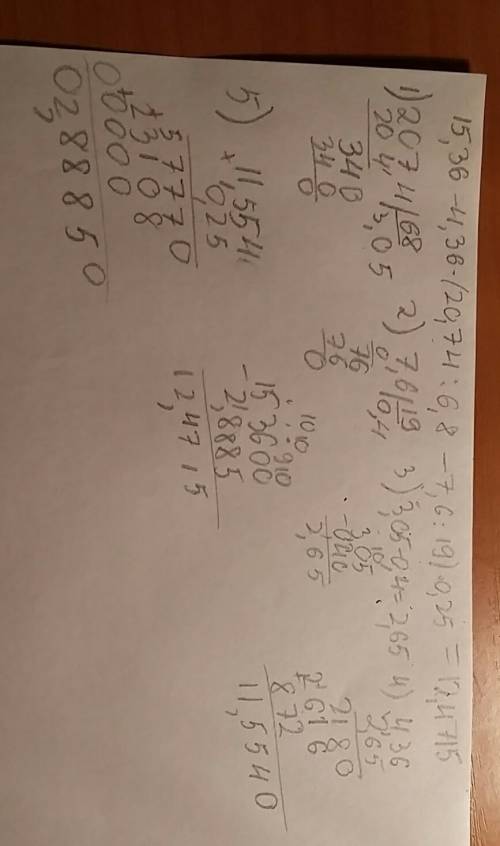 15,36 - 4,36 · (20,74 : 6,8 - 7,6 : 19) · 0,25 = 12,4715
1) 2074 | 68
204 | 3,05
340
340
0
2) 7,6 | 19
0 | 0,4
76
76
0
3) 3,05 - 0,4 = 2,65
10
3,05
- 0,40
2,65
4) 4,36
2,65
2180
2616
872
11,5540
5) 11,554
× 0,25
57770
+ 23108
0000
02,88850
10 10 9 10
- 15,3600
2,8885
12,4715